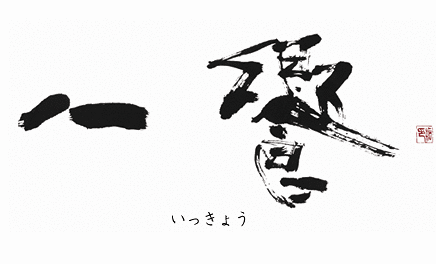 一響
いっきょう